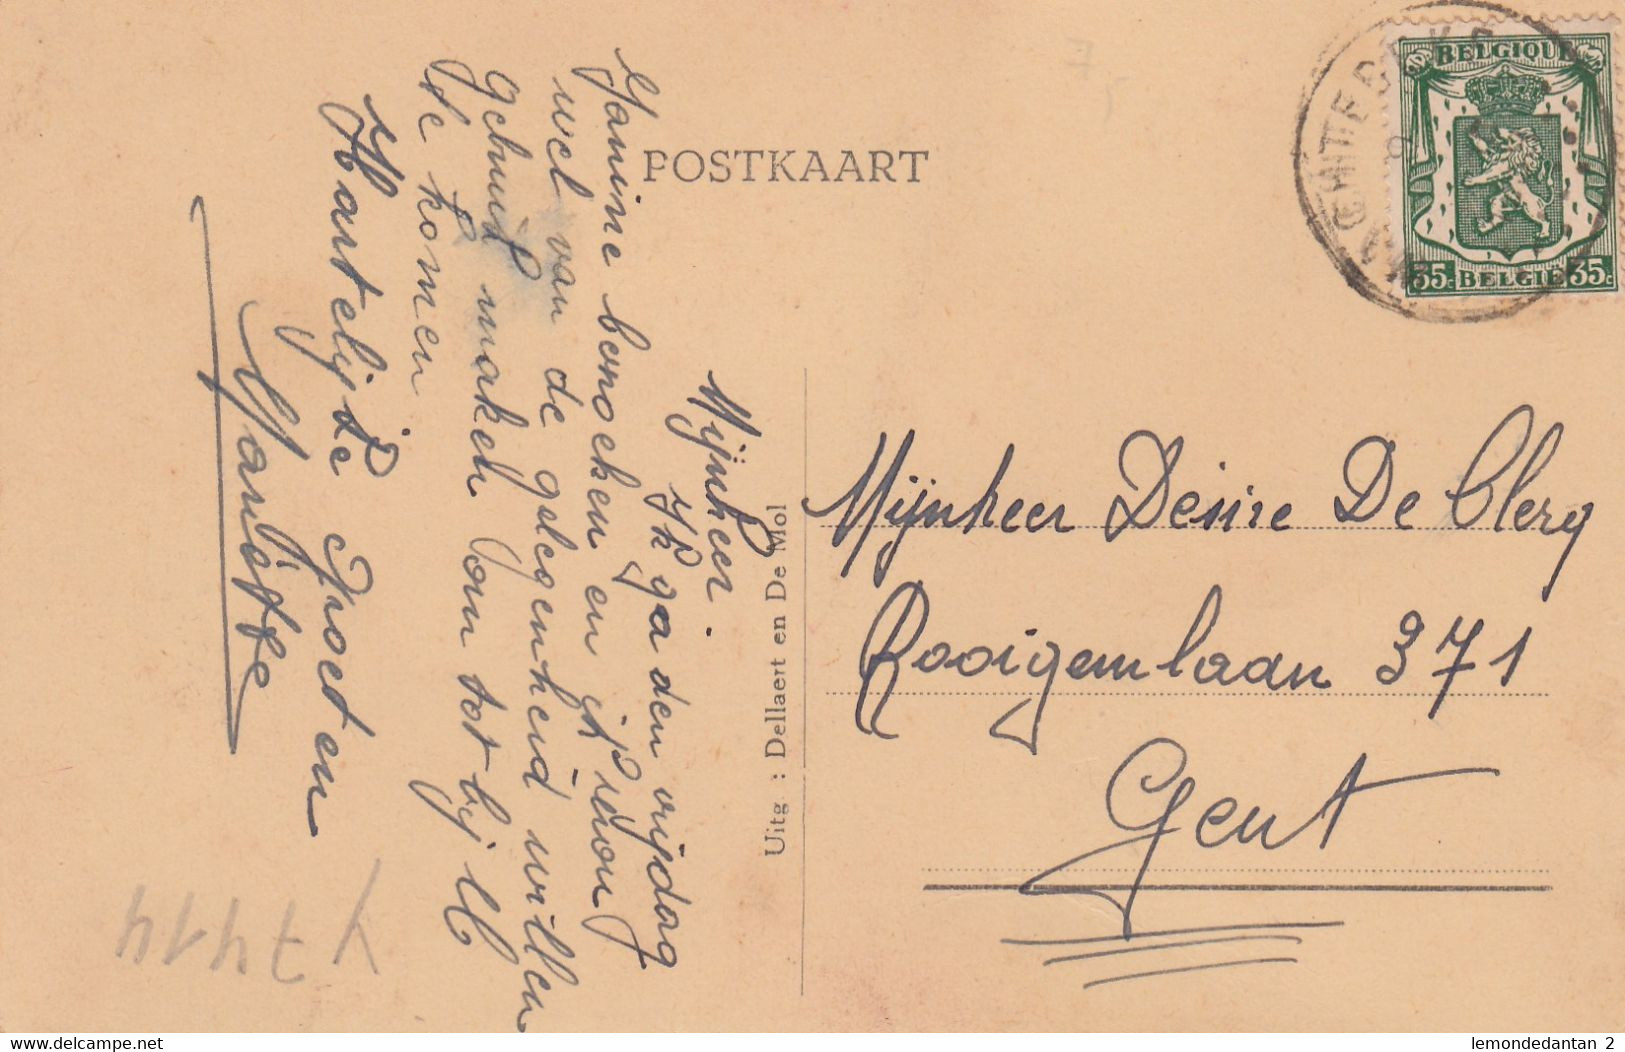 POSTKAART
BELGIQUE
35c BELGIE 35c
Mijnheer.
Ik ga den vrijdag
Janine bezoeken en ik zou
wel van de gelegenheid willen
gebruik maken om tot bij U
te komen
Hartelijke Groeten
Uitg : Dellaert en De Mol
Mijnheer Desire De Clerq
Rooigemlaan 371
Gent
delcampe.net
lemondedantan 2